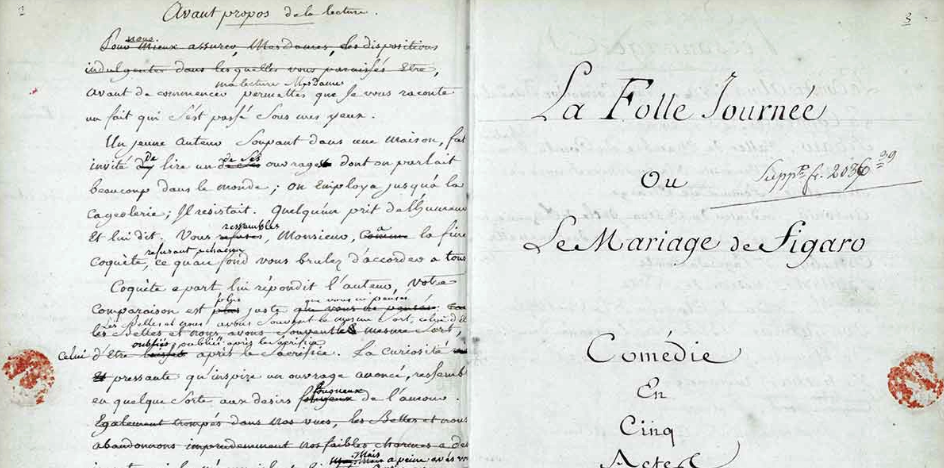 Avant propos de la lecture.
Pour mieux nous assurer, Mesdames, des dispositions
indulgentes dans lesquelles vous paraissés Etre,
avant de commencer ma lecture Mesdames permettes que Je vous raconte
un fait qui s'est passé Sous mes yeux.
Un jeune auteur Soupant dans une maison, fut
invité De lire un De Ses ouvrages dont on parlait
beaucoup dans le monde; on Employa jusqu'à la
cageolerie; Il resistait. Quelqu'un prit de l'humeur
Et lui dit. Vous ressemblés refusés, Monsieur, Comme à la fine
Coquète, refusant à chacun ce qu'au fond vous brulez d'accorder a tous
Coquète apart lui répondit l'auteur, Votre
Comparaison est plus juste que vous ne pensés
les Belles et nous avons Souvent le mesme Sort,
les Belles et nous avons Souvent le mesme Sort,
Celui d'être oubliés après le Sacrifice. La curiosité
pressante qu'inspire un ouvrage anoncé, ressemble
en quelque Sorte aux desirs fougueux de l'amour.
Egalement trompés dans nos vues, les Belles et nous
abandonnons imprudemment nos faibles charmes a des
Mais a peine avés vous
3
La Folle Journee
Ou
Suppt. fr. 2186 99
Le Mariage de Figaro
Comédie
En
Cinq
Actes